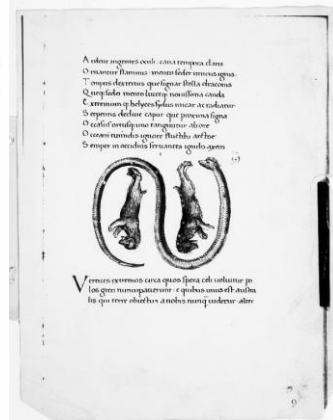 Ardent ingentes oculi caua tempora claris
Ornantur flammis mento sedet unicus ignis
Tempus dexterius que signat stella draconis
Queq; sedet mento lucetq; nouissima cauda
Extremum q; helyces sydus micat ac radiatur
Serpentis decliue caput que proxima signa
Occasus ortusq; uno tanguntur ab ore
Occeani tumidis ignote fluctibus arctoe
Semper in occiduis seruantes axem
Vertices extremos circa quos spera celi uoluitur po
los greci nuncupauerunt e quibus unus est austra
lis qui terre obiectus a nobis nunq̃ uidetur alter
9